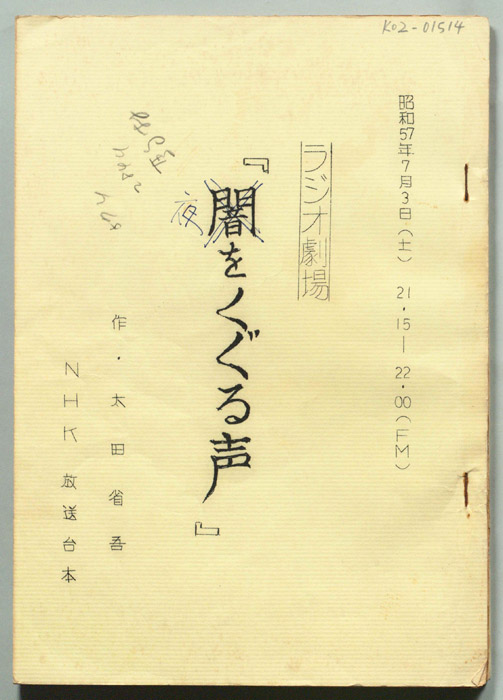 K02-01514
昭和57年7月3日(土) 21・15―22・00(FM)
ラジオ劇場
『闇をくぐる声』
夜
作・太田省吾
NHK放送台本